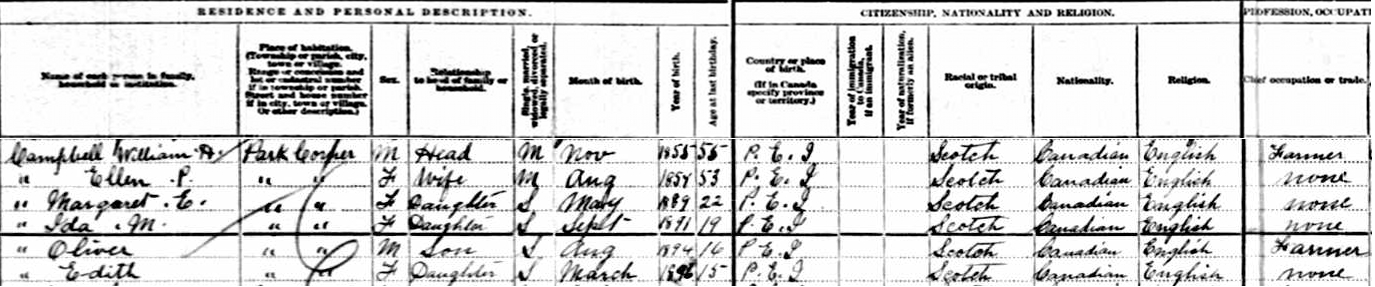 RESIDENCE AND PERSONAL DESCRIPTION. CITIZENSHIP, NATIONALITY AND RELIGION. PROFESSION, OCCUPAT
Name of each person in family, household or institution. Place of habitation. (Township or parish, city, town or village. Range or concession and lot or cadastral number if in township or parish. Street and house number if in city, town or village. Or other description.) Sex. Relationship to head of family or household. Single, married, widowed, divorced or legally separated. Month of birth. Year of birth. Age at last birthday. Country or place of birth. (If in Canada specify province or territory.) Year of immigration to Canada, if an immigrant. Year of naturalization, if formerly an alien. Racial or tribal origin. Nationality. Religion. Chief occupation or trade.
Campbell William H. Park Corner M Head M Nov 1855 55 P. E. I Scotch Canadian English Farmer
" Ellen . P. " " F Wife M Aug 1858 53 P. E. I Scotch Canadian English none
" Margaret . E. " " F Daughter S May 1889 22 P. E. I Scotch Canadian English none
" Ida . M. " " F Daughter S Sept 1891 19 P. E. I Scotch Canadian English none
" Oliver " " M Son S Aug 1894 16 P. E. I Scotch Canadian English Farmer
" Edith " " F Daughter S March 1896 15 P. E. I Scotch Canadian English none